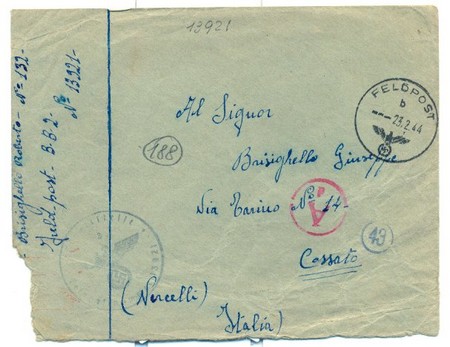 13921
Brisighello Roberto - Nº 132-
Feldpost - B.B.2 - Nº 13921-
FELDPOST
b
23.2.44
Al Signor
188
Brisighello Giuseppe
A
Via Torino Nº 14-
43
Cossato
(Vercelli)
Italia)